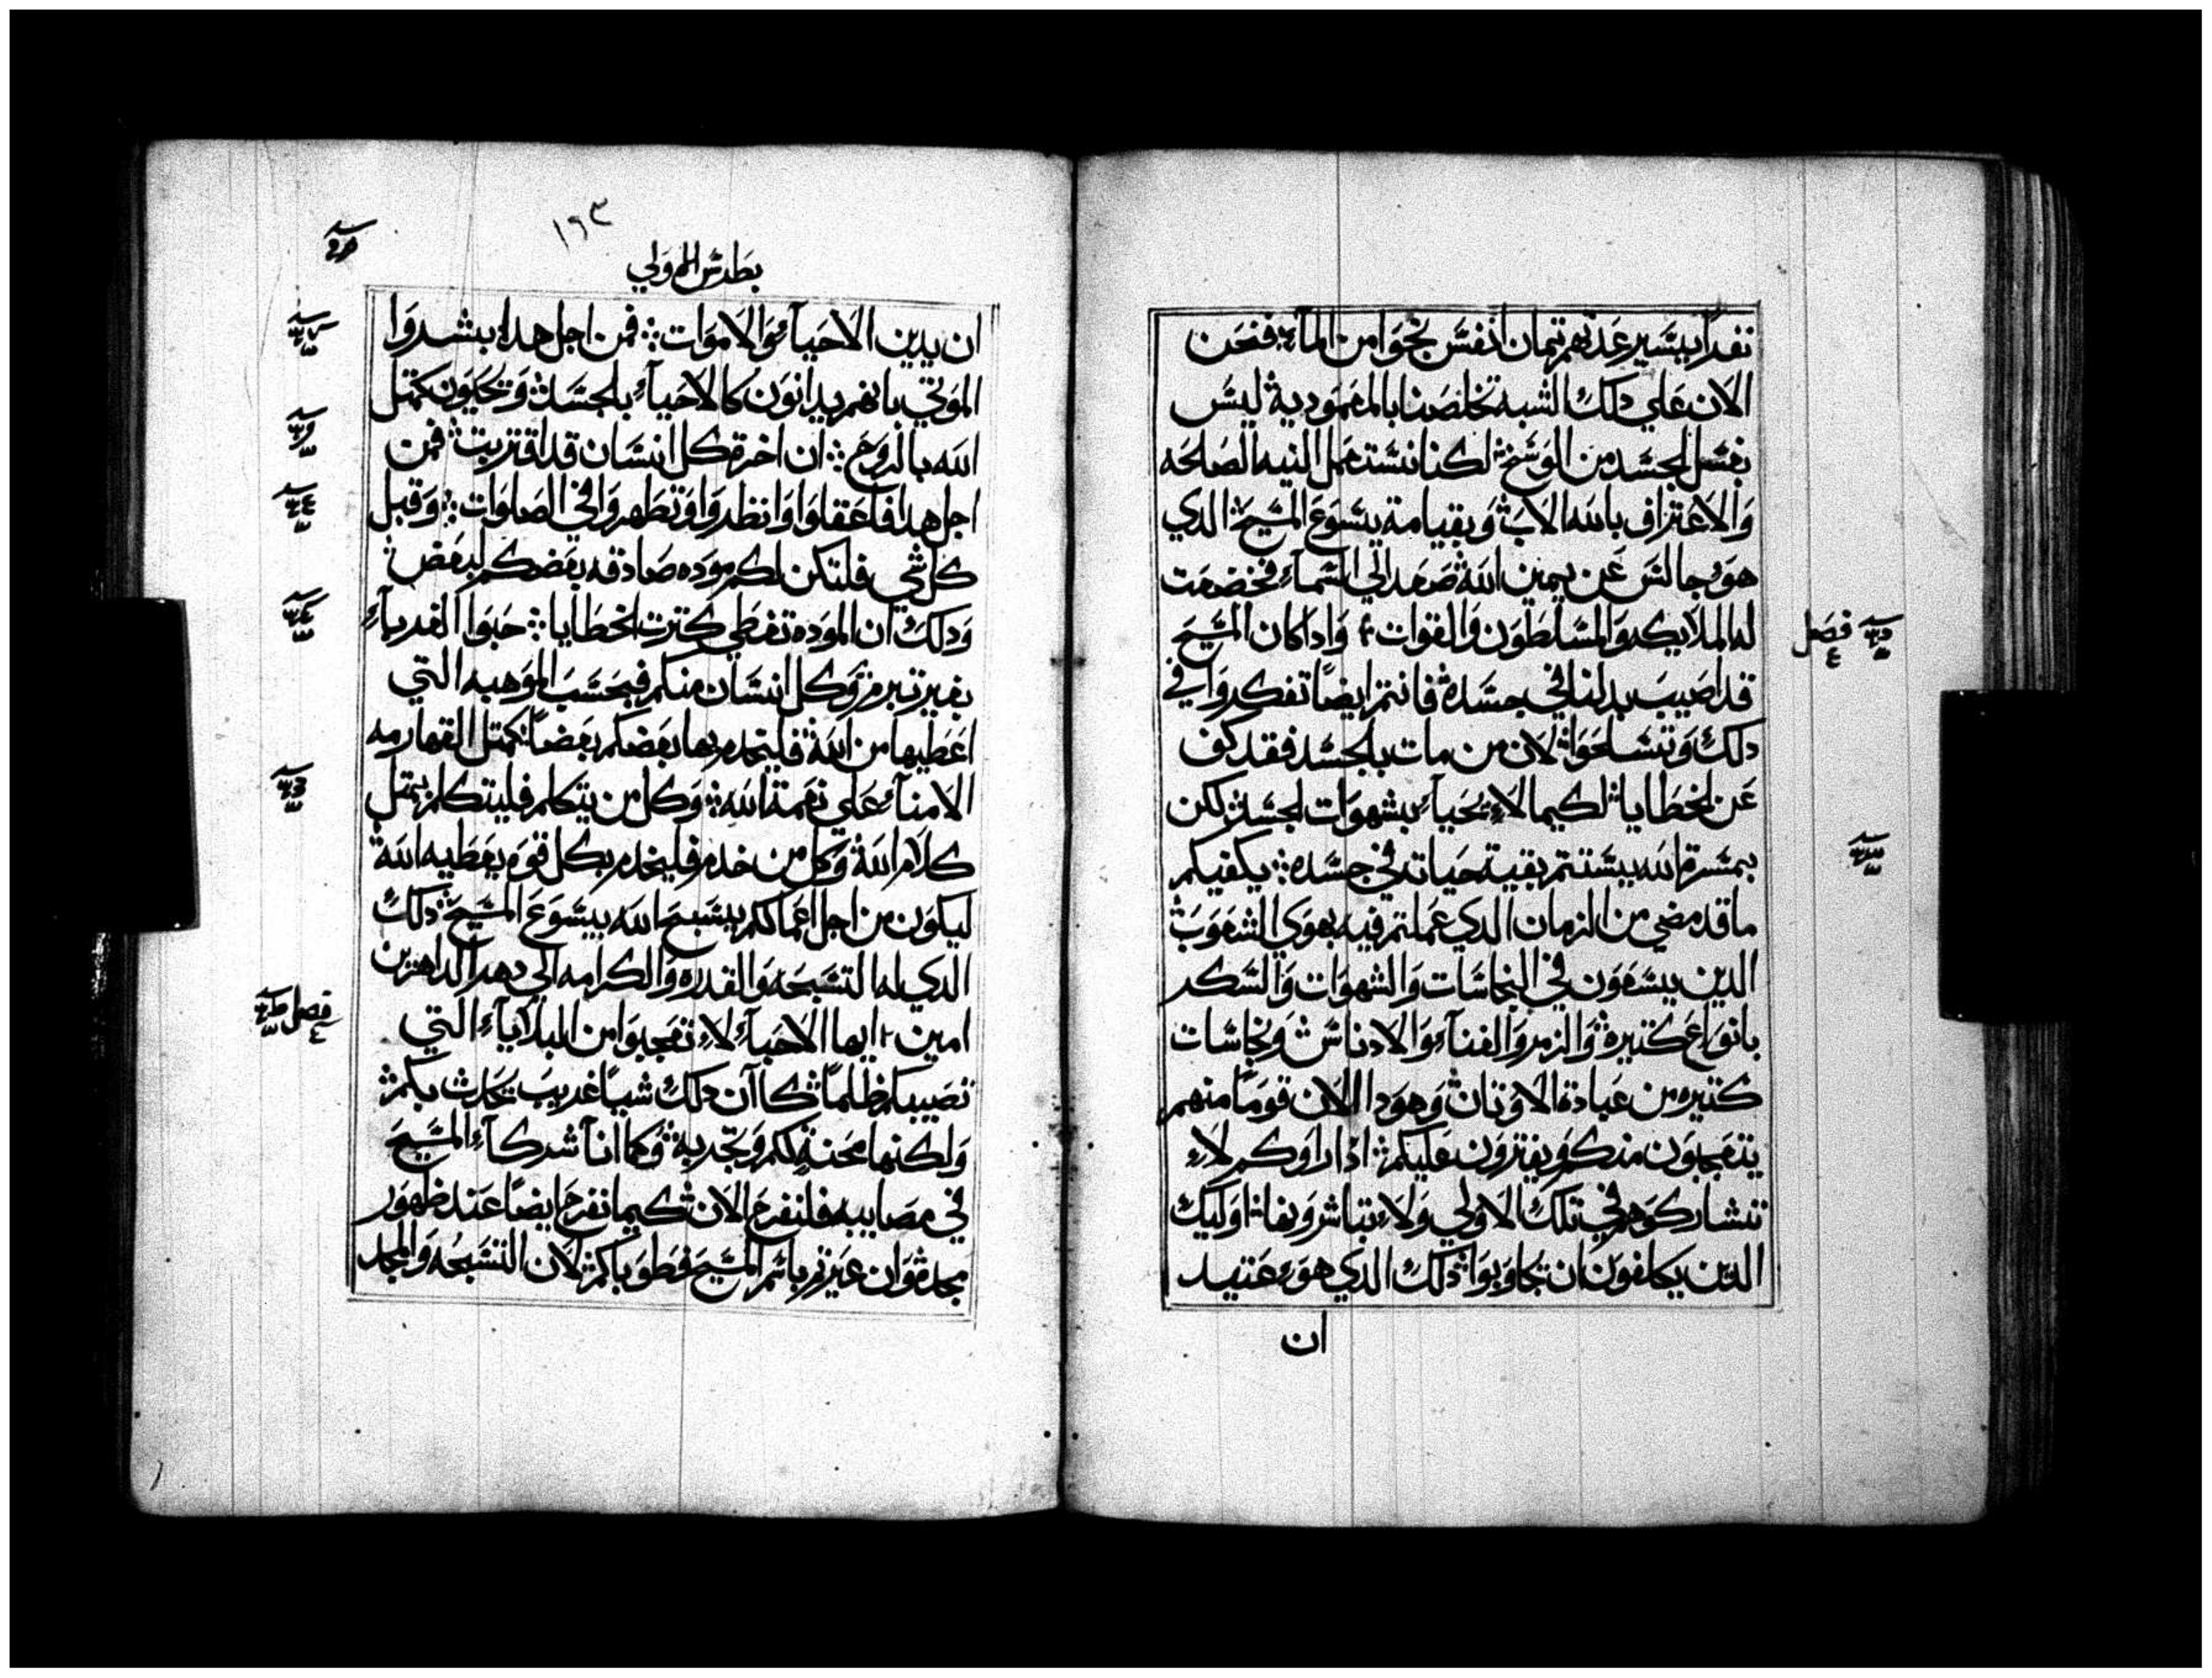 نفراً يسير عدتهم تمان انفس نجوا من الماء فنحن
الان علي دلك الشبه تخلصنا بالمعمودية ليس
بغسل الجسد من الوسخ لكنا نستعمل النيه الصالحه
والاعتراف بالله الاب وبقيامة يسوع المسيح الدي
هو جالس عن يمين الله صعد الي السماء فخضعت
له الملايكه والمسلطون والقوات وادا كان المسيح
قد اصيب بدلنا في جسده فانتم ايضاً تفكروا في
دلك وتسلحوا لان من مات بالجسد فقد كف
عن الخطايا لكيما لا يحيا بشهوات الجسد لكن
بمسرة الله يستتم بقية حياته في جسده يكفيكم
ما قد مضي من الزمان الدي عملتم فيه بهوي الشعوب
الدين يسعون في النجاسات والشهوات والسكر
بانواع كتيرة والزمر والغناء والادناس ونجاسات
كتيره من عبادة الاوتان وهودا الان قوماً منهم
يتعجبون منكم ويفترون عليكم ادا راوكم لا
تشاركوهم في تلك الاولي ولا تباشرونها اوليك
الدين يكلفون ان تجاوبوا دلك الدي هو عتيد
ان
فصل
١٦٣
بطرس الاولي
ان يدين الاحياء والاموات فمن اجل هدا بشروا
الموتي بانهم يدانون كالاحياء بالجسد ويحيون كمتل
الله بالروح ان اخرة كل انسان قد اقتربت فمن
اجل هدا فاعقلوا وانظروا وتطهروا في الصلوات وقبل
كل شي فلتكن لكم موده صادقه بعضكم لبعض
ودلك ان الموده تغطي كترت الخطايا حبوا الغرباء
بغير تبرم وكل انسان منكم فبحسب الموهبه التي
اعطيها من الله فليخدم بها بعضكم بعضاً كمتل القهارمه
الامناء علي نعمة الله وكل من يتكلم فليتكلم بمتل
كلام الله وكل من خدم فليخدم بكل قوه يعطيه الله
ليكون من اجل اعمالكم يسبح الله بيسوع المسيح دلك
الدي له التسبحه والقدره والكرامه الي دهر الداهرين
امين ايها الاحباء لا تعجبوا من البلايا التي
تصيبكم ظلماً كان دلك شياً غريب تحادث بكم
ولكنها محنة لكم وتجربة وكما انا شركاء المسيح
في مصايبه فلنفرح الان كيما نفرح ايضاً عند ظهور
مجده وان عيرتم باسم المسيح فطوباكم لان التسبحه والمجد
فصل